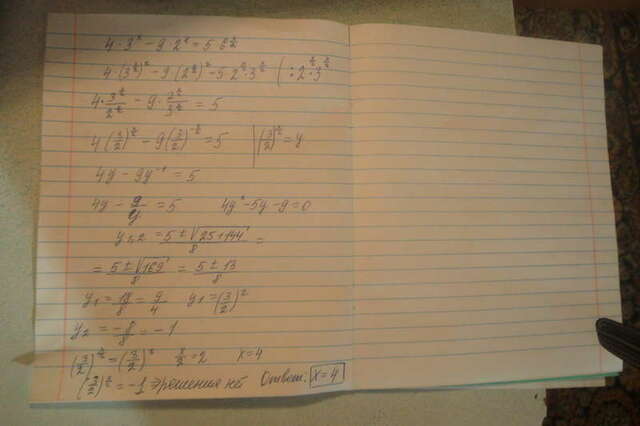 4·3ˣ - 9·2ˣ = 5·6^(x/2)
4·(3^(x/2))² - 9(2^(x/2))² - 5·2^(x/2)·3^(x/2) | :2^(x/2)·3^(x/2)
4·3^(x/2)/2^(x/2) - 9·2^(x/2)/3^(x/2) = 5
4(3/2)^(x/2) - 9(3/2)^(-x/2) = 5 | (3/2)^(x/2) = y
4y - 9y⁻¹ = 5
4y - 9/y = 5 4y² - 5y - 9 = 0
y₁,₂ = (5 ± √(25+144))/8 =
= (5 ± √169)/8 = (5 ± 13)/8
y₁ = 18/8 = 9/4 y₁ = (3/2)²
y₂ = -8/8 = -1
(3/2)^(x/2) = (3/2)² x/2 = 2 x = 4
(3/2)^(x/2) = -1 ⇒ решения нет Ответ: x = 4